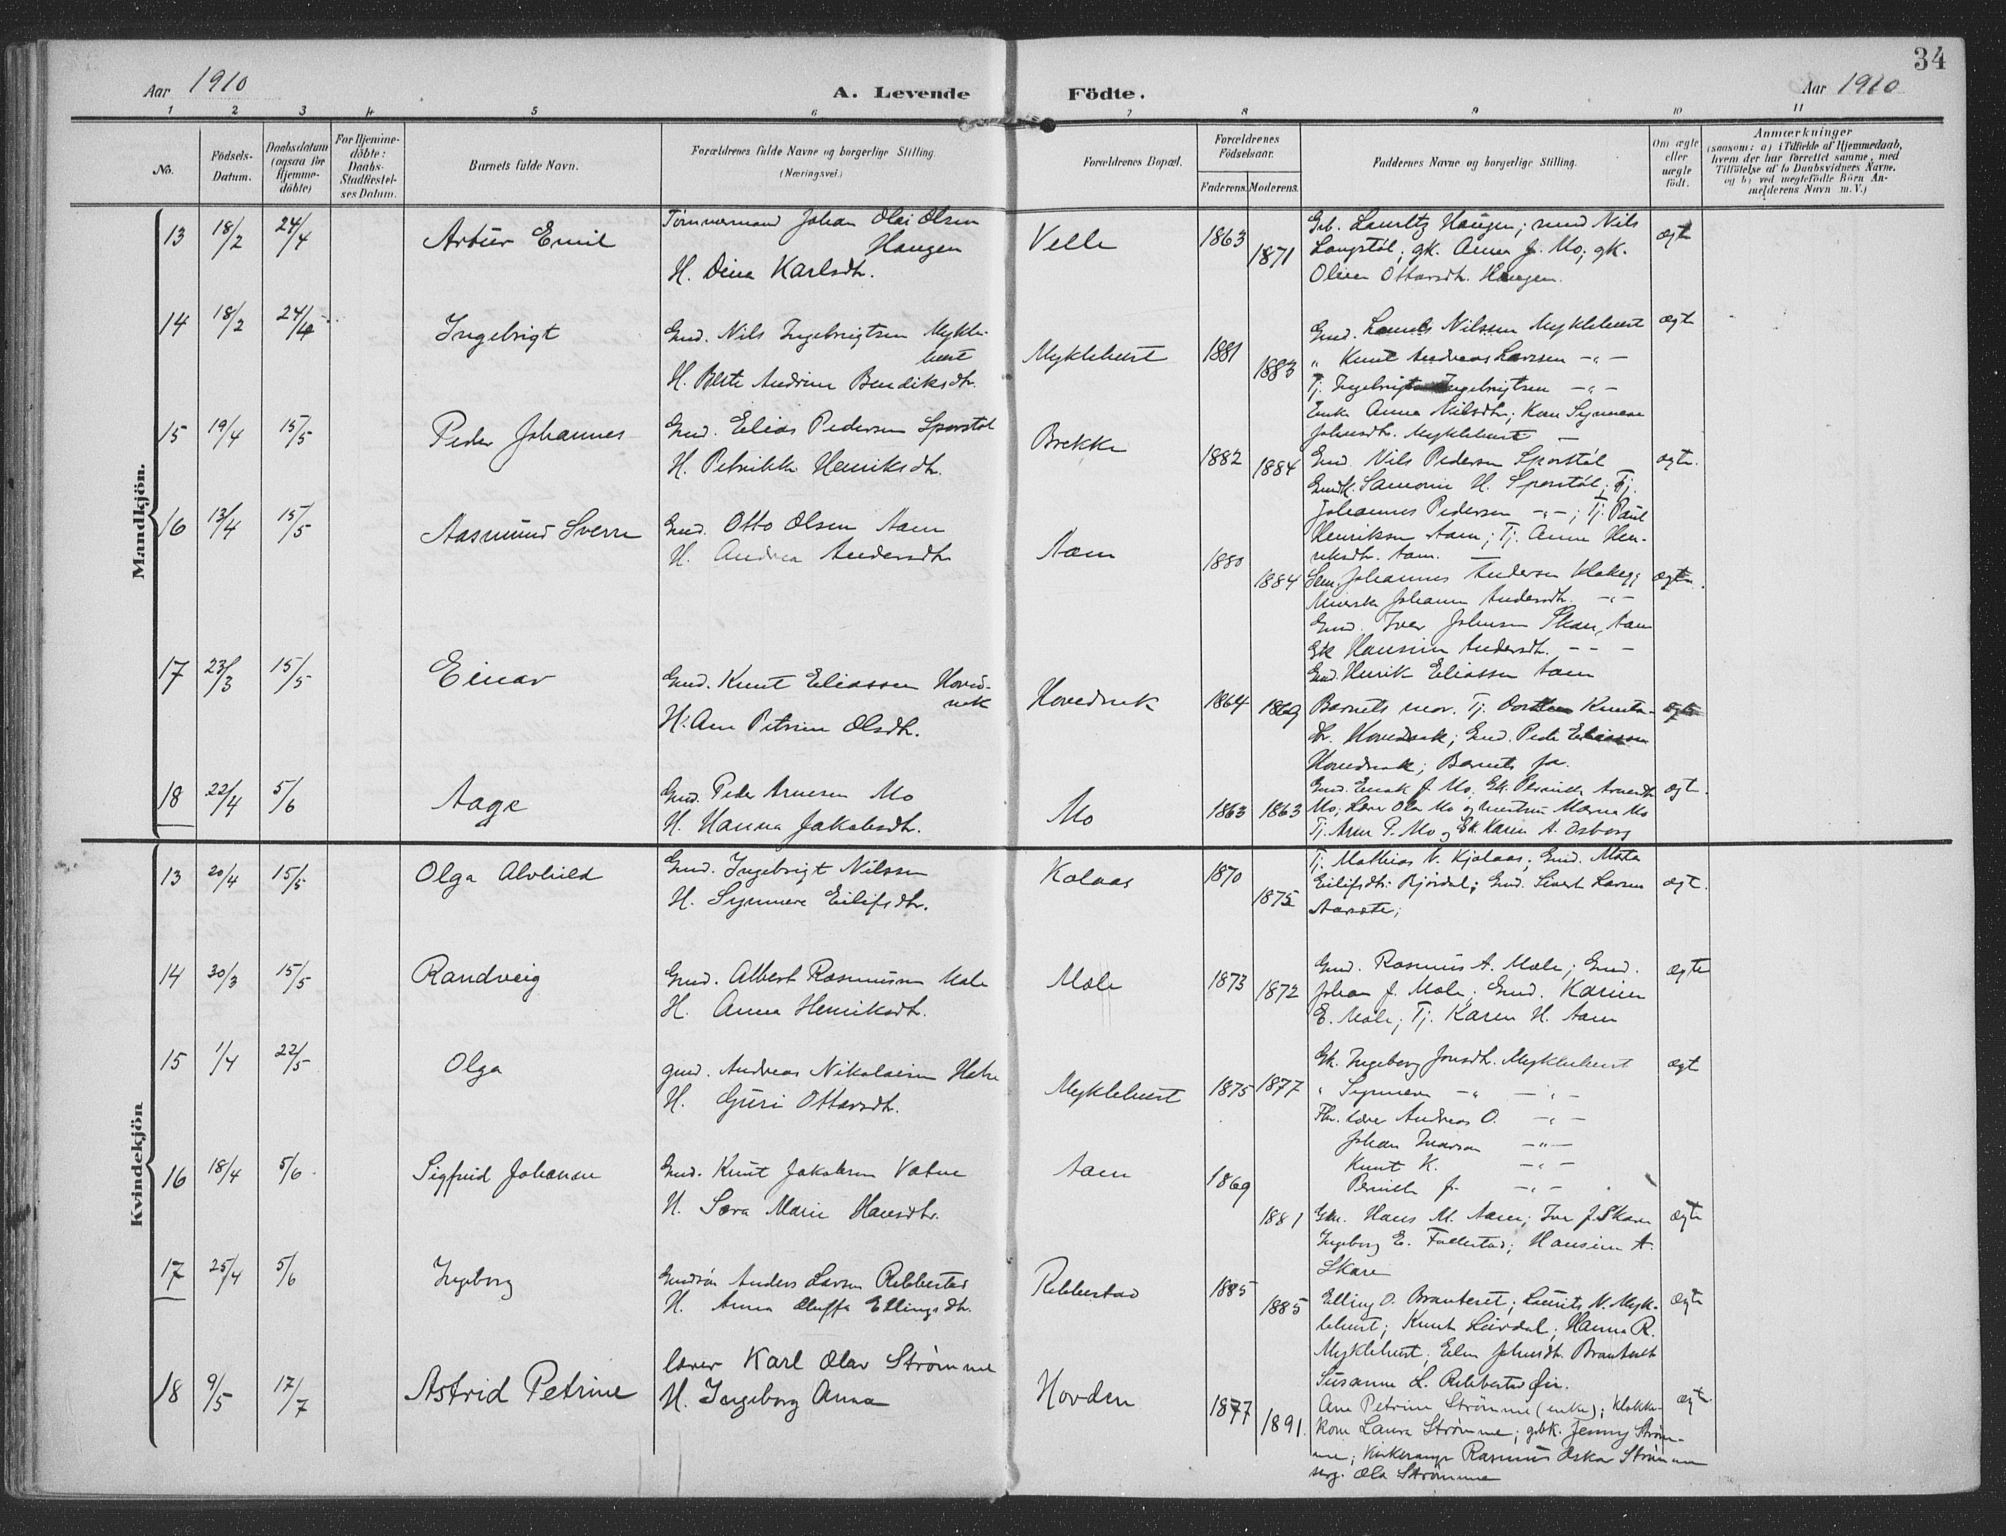 34
Aar 1910
A. Levende Födte.
Aar 1910
1 2 3 4 5 6 7 8 9 10 11
No.
Födsels-Datum.
Daabsdatum (ogsaa for Hjemmedöbte)
For Hjemmedöbte: Daabs-Stadfæstelses Datum.
Barnets fulde Navn.
Forældrenes fulde Navne og borgerlige Stilling. (Næringsvei.)
Forældrenes Bopæl.
Forældrenes Födselsaar.
Faderens. Moderens.
Faddernes Navne og borgerlige Stilling.
Om ægte eller uægte födt.
Anmærkninger
(saasom: a) i Tilfælde af Hjemmedaab,
hvem der har forrettet samme, med
Tilföielse af to Daabsvidners Navne.
og b) ved uægtefödte Börn An-
melderens Navn m. V.)
Mandkjön.
13 18/2 24/4 Artur Emil
Tømmermand Johan Olai Olsen
Haugen
H. Dina Karlsdtr.
Velle 1863 1871
Gb. Lauritz Haugen; und Nils
Langstöl; gk. Anna J. Mo; gk.
Oline Ottarsdtr. Haugen.
ægt
14 18/2 24/4 Ingebrigt
Gmd. Nils Ingebrigtsen Mykle-
bust
H. Berte Andrine Bendiksdtr.
Myklebust 1881 1883
Gmd. Nilssen Myklebust
" Knut Andreas Larssen -"-
Tj. Ingebrigt Ingebrigtsen -"-
Enke Anna Nilsdtr; Kone Synneve
Johnsdtr. Myklebust
ægt
15 19/4 15/5 Peder Johannes
Gmd. Elias Pedersen Sporstöl
H. Petrikke Henriksdtr.
Brekke 1882 1884
Gmd. Nils Pedersen Sporstöl
Gmdk. H. Sporstöl; Tj.
Johannes Pedersen -"-; Tj. Paul
Henriksen Aam; Tj. Anna Hen-
riksdtr. Aam.
ægte.
16 13/4 15/5 Aasmund Sverre
Gmd. Otto Olsen Aam
H. Andrea Andersdtr
Aam 1880 1884
Johannes Andersen Klokeg;
Johanne Andersdtr. -"-
Gmd. Iver Johnsen Skare, Aam
Gk Hansine Andersdtr. - - -
Gmd. Henrik Eliassen Aam
ægte.
17 23/3 15/5 Einar
Gmd. Knut Eliassen Hoved-
nek
H. Ane Petrine Olsdtr.
1864 1869
Barnets mor. Tj. Knuts-
dtr. ; Gmd. Peder Eliassen
; Barnets far.
ægte
18 22/4 5/6 Aage
Gmd. Peder Arnesen Mo
H. Hanna Jakobsdtr.
Mo 1863 1863
Gmd. Enok J. Mo, Gk. Pernille
Mo; Lære Ola Mo og Mo
Tj. Arne P. Mo og Gk. Karen A. Osborg
ægt.
Kvindekjön
13 20/4 15/5 Olga Alvhild
Gmd. Ingebrigt Nilssen
H. Synneve Eilifsdtr.
Kolaas 1870 1875
Tj. Mathias N. Kjolaas; Gmd. Mata
Eilifsdtr. Bjørdal; Gmd. Sivert Larsen
Aarsete;
ægt.
14 30/3 15/5 Randveig
Gmd. Albert Rasmussen Mole
H. Anna Henriksdtr.
Mole 1873 1872
Gmd. Rasmus A. Mole; Gmd.
Johan J. Mole; Gmd. Karine
E. Mole; Tj. Karen H. Aam
ægte
15 1/4 22/5 Olga
gmd. Andreas Nikolaisen
H. Guri Ottarsdtr.
Myklebust 1875 1877
Gk. Ingeborg Jonsdtr. Myklebust
" Synneve -"- -"-
Andreas O. -"-
Johan Ivarson -"-
Knut K. -"-
Pernille J. -"-
ægt
16 18/4 5/6 Sigfrid Johanne
Gmd. Knut Jakobsen Vatne
H. Sara Marie Hansdtr.
Aam 1869 1881
Hans M. Aam; Iver J. Skare
Ingeborg E. Follestad; Hansine A.
Skare
ægte
17 25/4 5/6 Ingeborg
Gmdsön Anders Larsen Rebbestad
H. Anna Oluffa Ellingsdtr.
Rebbestad 1885 1885
Elling O. ; Laurits N. Myk-
lebust; Knut Lievdal; Hanna R.
Myklebust, Johnsdtr.
Susanne L. Rebbestad
ægte
18 9/5 17/7 Astrid Petrine
lærer Karl Olav Strømme
H. Ingeborg Anna
Hovden 1877 1891.
Ane Petrine Strømme (enke); klokke-
kone Laura Strømme; gbk. Jenny Strøm-
me; Kirkesanger Rasmus Oskar Strømme
Ola Strømme
ægte